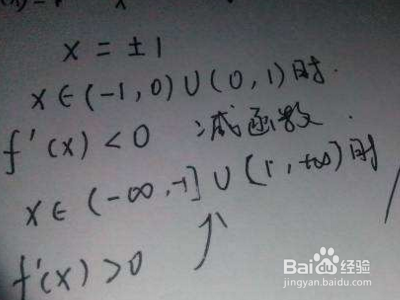 x = ±1
x∈(-1,0)∪(0,1)时.
f'(x)<0 减函数.
x∈(-∞,-1]∪(1,+∞)时
f'(x)>0 ↑
Baidu经验
jingyan.baidu.com